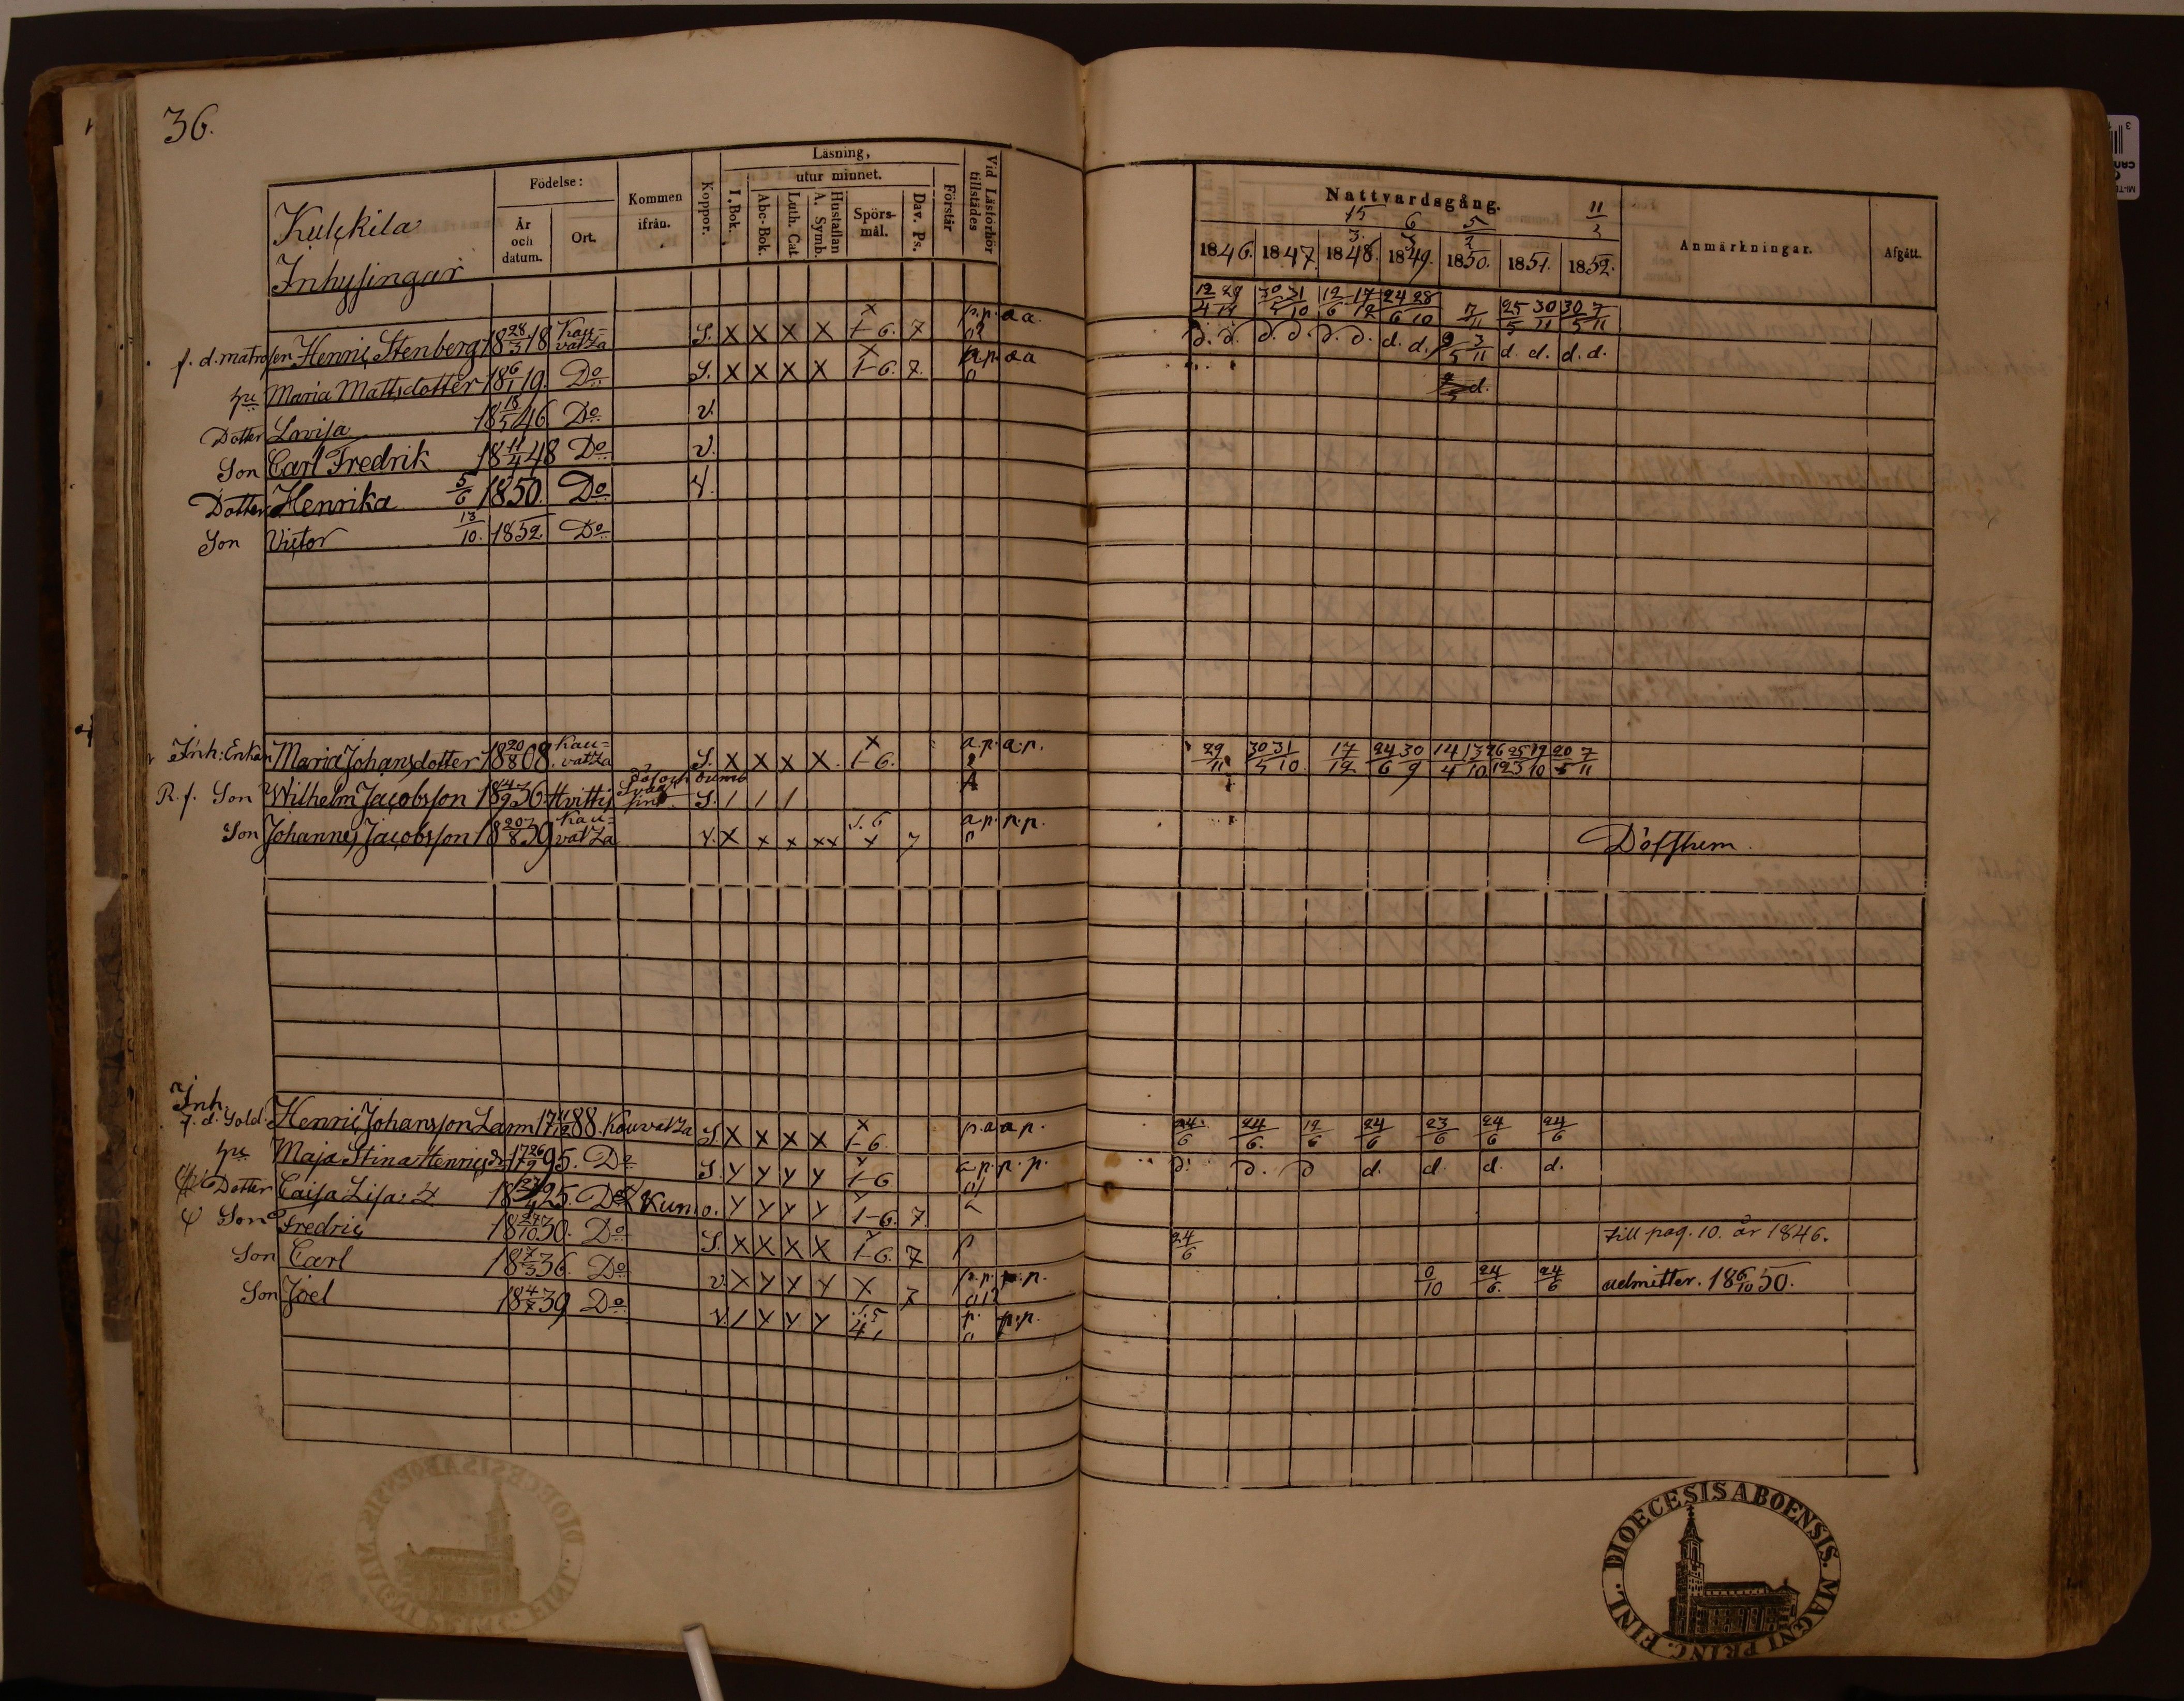 36.
Kulckila
Inhysingar
Födelse:
År och datum.
Ort.
Kommen ifrån.
Koppor.
Läsning,
utur minnet.
I Bok.
Abc-Bok.
Luth. Cat.
Hustaflan A. Symb.
Spörsmål.
Dav. Ps.
Förstår
Vid Läsförhör tillstädes
Nattvardsgång.
15/3. 6/3 5/2 11/3
1846. 1847. 1848. 1849. 1850. 1851. 1852.
Anmärkningar.
Afgått.
f. d. matrosen Henric Stenberg 18 28/3 18 Kauvatza S. X X X X X 1-6. 7 p.p. a a. 12/4 29/11 30/5 31/10 12/6 17/12 24/6 28/10 7/11 25/5 30/11 30/5 7/11
hu Maria Mattsdotter 18 6/1 19. Do S. X X X X X 1-6. 7. a.p. a a d. d. d. d. d. d. d. d. 3/11 d. d. d. d.
Dotter Lovisa 18 13/5 46 Do v. d.
Son Carl Fredrik 18 11/4 48 Do v.
Dotter Henrika 5/6 1850. Do V.
Son Victor 13/10. 1852. Do
Inh: Enkan Maria Johansdotter 18 20/8 08. Kauvatza S. X X X X. X 1-6. a.p. a.p. 29/11 30/5 31/10 17/12 24/6 30/9 14/4 13/10 26/12 25/5 19/10 20/5 7/11
R. f. Son Wilhelm Jacobsson 18 14/9 36. Hvittis döf och dumb S. / / / A
Son Johannes Jacobsson 18 20/8 39 Kauvatza v. X x x xx 1.6 x 7 a.p. p.p. Döfstum.
Inh.
f. d. Sold. Henric Johansson Lam 17 11/12 88. Kauvatza S. X X X X X 1-6. p.a a p. 24/6 24/6. 12/6 24/6 23/6 24/6 24/6
hu Maja Stina Henricsdr 17 26/2 95. Do S. Y Y Y Y Y 1-6 a.p. p. p. d. d. d d. d. d. d.
Dotter Caisa Lisa 18 25. Do Kum. v. Y Y Y Y Y 1-6. 7.
Son Fredric 18 27/10 30. Do S. X X X X Y 1-6. 7 p 24/6 till pag. 10. år 1846.
Son Carl 18 7/3 36. Do v. X Y Y Y X 7 p.p. p.p. 6/10 24/6. 24/6 admitter. 18 6/10 50.
Son Joel 18 4/7 39 Do v. / Y Y Y p. p.p.
DIOECESIS ABOENSIS. MAGNI PRINC. FINL.